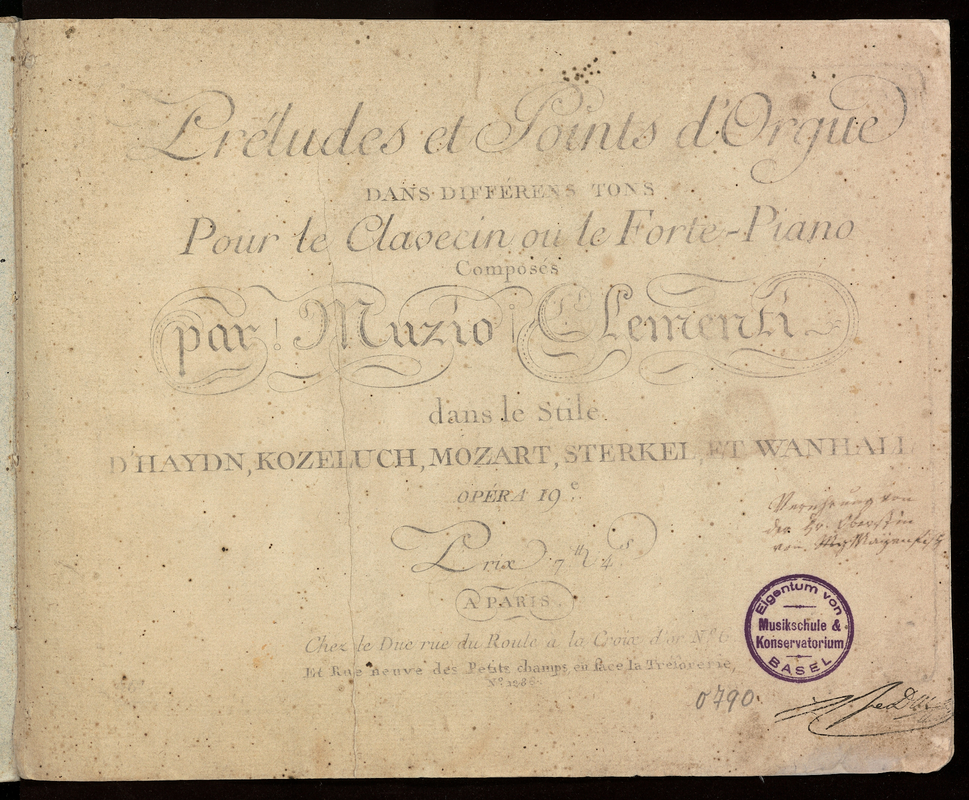 Préludes et Points d'Orgue
DANS DIFFÉRENS TONS
Pour le Clavecin ou le Forte-Piano
Composés
par Muzio Clementi
dans le Stile
D'HAYDN, KOZELUCH, MOZART, STERKEL, ET WANHALL
OPÉRA 19.e
Prix 7 tt 4 s
A PARIS
Chez le Duc rue du Roule à la Croix d'or No. 6
Et Rue neuve des Petits champs, en face la Trésorerie,
von
der Hr.
von
Eigentum von
Musikschule &
Konservatorium
BASEL
0790.
le Duc